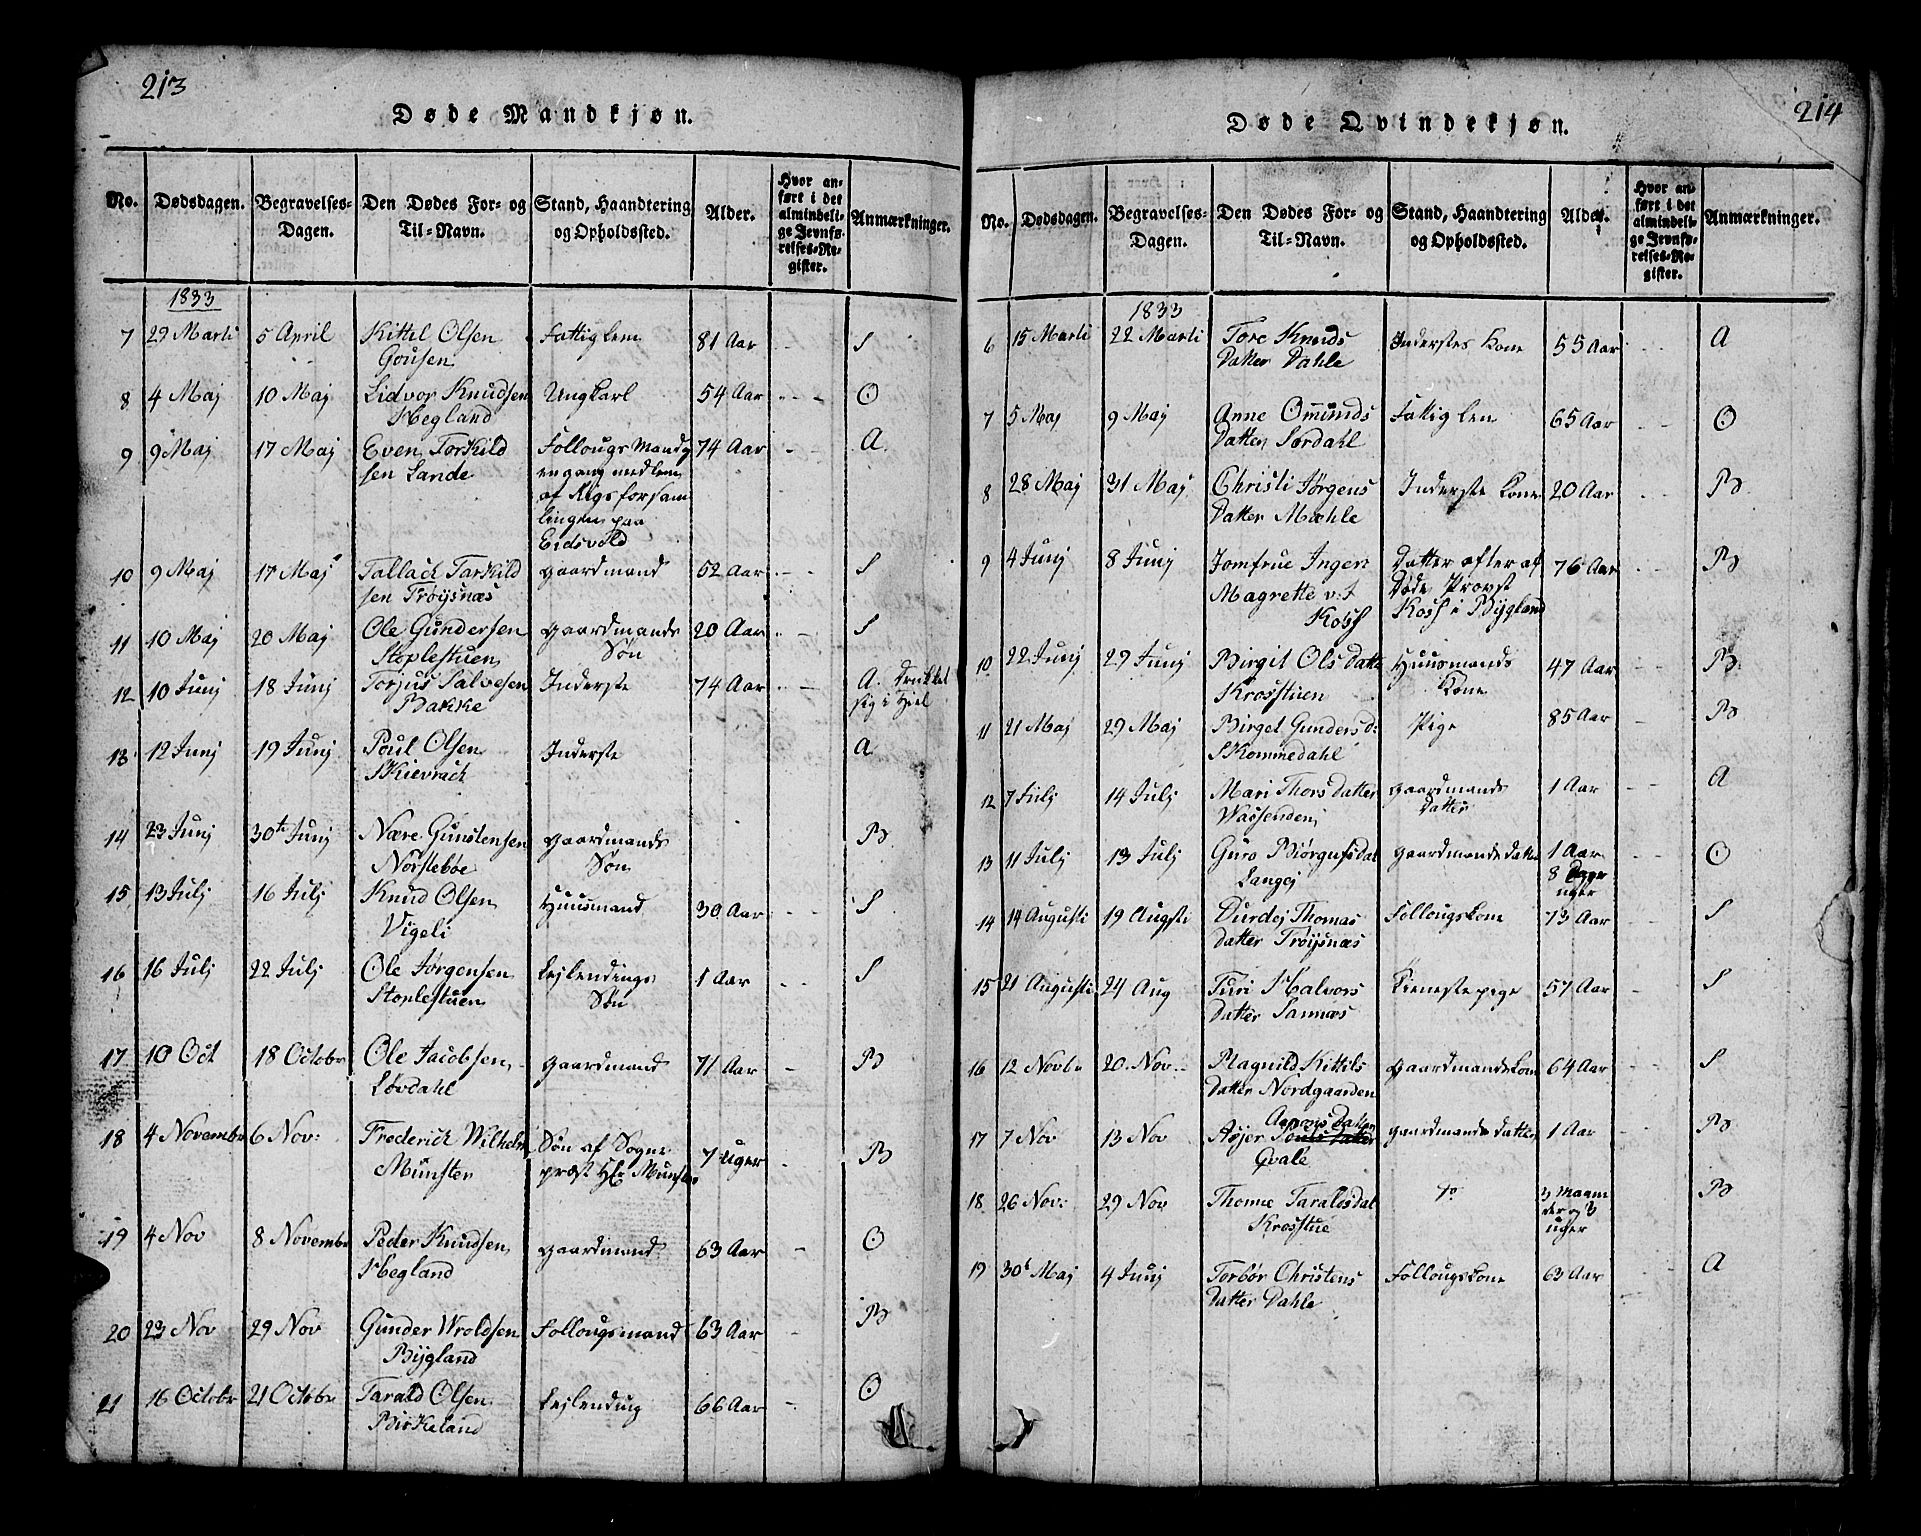 213
Døde Mandkjøn.
No. Dødsdagen. Begravelses-Dagen. Den Dødes For- og Til-Navn. Stand, Haandtering og Opholdssted. Alder. Hvor anført i det almindelige Jevnførelses-Register. Anmærkninger.
1833
7 29 Marti 5 April Kittil Olsen Fattiglem 81 Aar - - S
Gousen
8 4 Maj 10 Maj Lidvor Knudsen Ungkarl 54 Aar - - - O
Hegland
9 9 Maj 17 Maj Even Torkild Follougs Mand og 74 Aar - - A.
sen Sande engang medlem
af Rigsforsam
lingen paa
Eidsvold
10 9 Maj 17 Maj Tallack Tarkild gaardmand 52 Aar - - S
sen Frøysnæs
11 10 Maj 20 Maj Ole Gundersen gaardmands 20 Aar - - S
Stoplestuen Søn
12 10 Junj 18 Junj Torjus Salvesen Inderste 74 Aar - - A. Druknet
Bakke sig i
13 12 Junj 19 Junj Poul Olsen Inderste A
Skievrack
14 23 Junj 30te Junj Nære Gunstensen gaardmands B
Norstebøe Søn
15 13 Julj 16 Julj Knud Olsen Huusmand 30 Aar - - S
Vigeli
16 16 Julj 22 Julj Ole Jørgensen Lejlendings 1 Aar - - S
Stoplestuen Søn
17 10 Oct 18 Octobr Ole Jacobsen gaardmand 71 Aar - B
Løvdahl
18 4 Novembr 6 Nov: Frederich Wilhelm Søn af Sogne 7 uger - B
Münster præst Hr Munster
19 4 Nov 8 Novembr Peder Knudsen gaardmand 63 Aar - O
Hegland
20 23 Nov 29 Nov Gunder Wroldsen Follougsmand 63 Aar - B
Bÿgland
21 16 Octobr 21 Octobr Tarald Olsen Lejlending 66 Aar - O
Birkeland
214
Døde Qvindekjøn.
No. Dødsdagen. Begravelses-Dagen. Den Dødes For- og Til-Navn. Stand, Haandtering og Opholdssted. Alder. Hvor anført i det almindelige Jevnførelses-Register. Anmærkninger.
1833
6 15 Marti 22 Marti Tore Knuds Inderstes Kone 55 Aar - - A
Datter Dahle
7 5 Maj 9 Maj Anne Omunds Fattiglem 65 Aar - - O
Datter Sørdahl
8 28 Maj 31 Maj Christi Jørgens Inderste Kone 20 Aar - - B
Datter Mæhle
9 4 Junj 8 Junj Jomfrue Inger Datter efter af 76 Aar - - B
Magrette v. f Døde Provst
Koss Koss i Bÿgland
10 22 Junj 29 Junj Birgit Ols Datter Huusmands 47 Aar - - B
Krosstuen Kone
11 21 Maj 29 Maj Birgit Gunders d: Pige 85 Aar - B
Skommedahl
12 7 Julj 14 Julj Mari Thors Datter gaardmands 1 Aar - - A
Wassenden Datter
13 11 Julj 13 Julj Guro Biørgufsdat gaardmands datter 1 Aar - - O
Langej 8
uger
14 14 Augusti 19 Augsti Durdej Thomas Follougskone 73 Aar - - S
datter Frøysnæs
15 21 Augusti 24 Aug Turi Halvors Tieneste pige 57 Aar - S
datter Sannæs
16 12 Novbr 20 Nov. - Ragnild Kittils gaardmands kone 64 Aar - - S
datter Nordgaarden
Aanons Datter
17 7 Nov 13 Nov Asjer gaardmands datter 1 Aar - - B
Qvale
18 26 Nov: 29 Nov Thonne Taraldsdat do Maan B
Krosstue der og 3
uger
19 30t Maj 4 Junj Torbør Christens Follougskone 63 Aar - - A
Datter Dahle